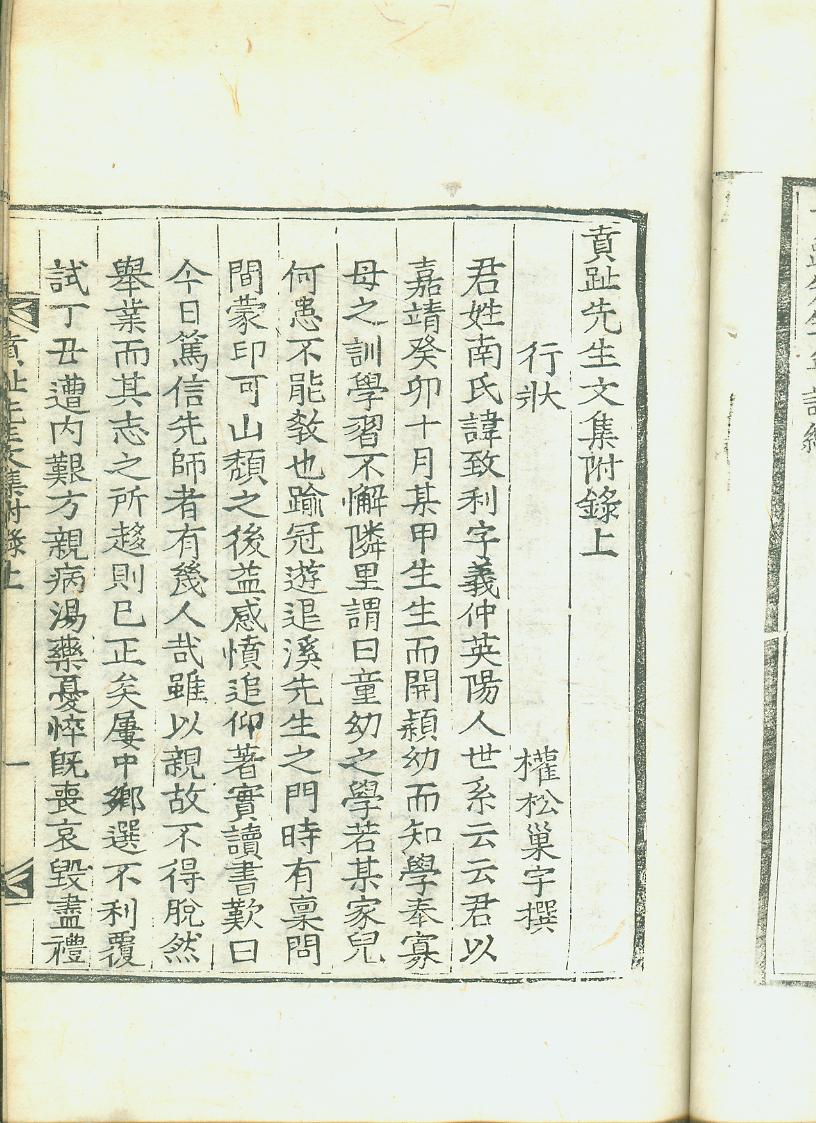 賁趾先生文集附錄上
行狀 權松巢宇撰
君姓南氏諱致利字義仲英陽人世系云云君以
嘉靖癸卯十月某甲生生而開穎幼而知學奉寡
母之訓學習不懈隣里謂曰童幼之學若某家兒
何患不能敎也踰冠遊退溪先生之門時有稟問
間蒙印可山頹之後益感憤追仰著實讀書歎曰
今日篤信先師者有幾人哉雖以親故不得脫然
舉業而其志之所趍則已正矣屢中鄕選不利覆
試丁丑遭內艱方親病湯藥憂悴旣喪哀毀盡禮
賁趾先生文集附錄上 一